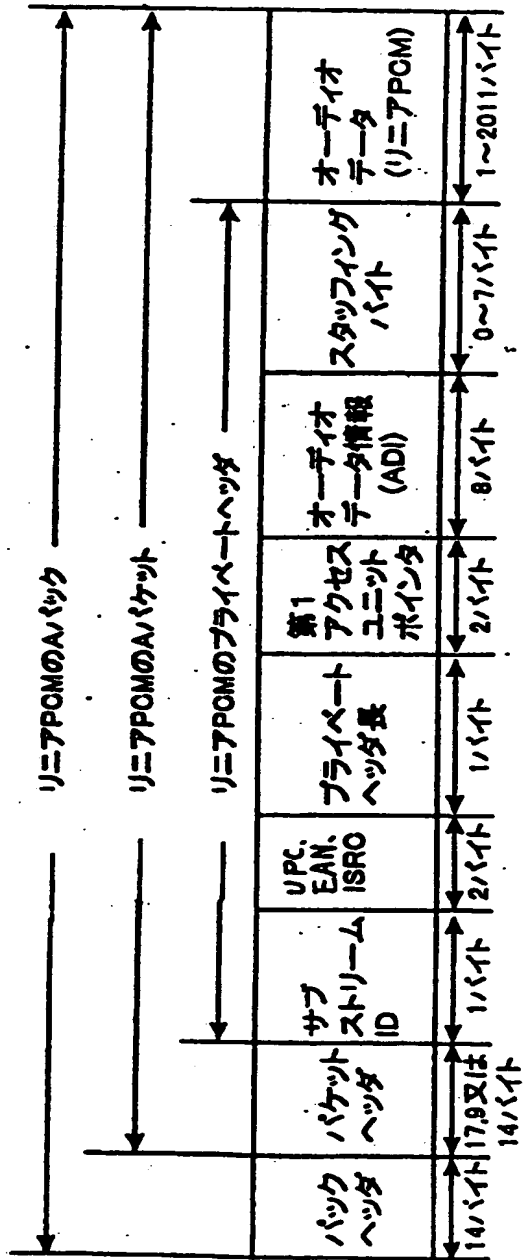 リニアPCMのAパック
リニアPCMのAパケット
リニアPCMのプライベートヘッダ
パック
ヘッダ
パケット
ヘッダ
サブ
ストリーム
ID
UPC、
EAN、
ISRC
プライベート
ヘッダ長
第1
アクセス
ユニット
ポインタ
オーディオ
データ情報
(ADI)
スタッフィング
バイト
オーディオ
データ
(リニアPCM)
14バイト
17,9又は
14バイト
1バイト
2バイト
1バイト
2バイト
8バイト
0~7バイト
1~2011バイト